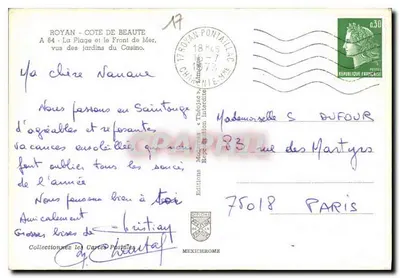 ROYAN - COTE DE BEAUTE
A 64 - La Plage et le Front de Mer,
vus des jardins du Casino.
17
17 ROYAN-PONTAILLAC
CHARENTE-MME
0,30
REPUBLIQUE FRANÇAISE
Ma chère Nanane
Nous passons en Saintonge
d'agréables et reposantes
vacances ensoleillées qui nous
font oublier tous les soucis
de l'année
Nous pensons bien à toi
Amicalement
Grosses bises de Christian
et Chantal
Collectionnez les Cartes Postales
Mademoiselle S DUFOUR
83 rue des Martyrs
75018 PARIS
MEXICHROME